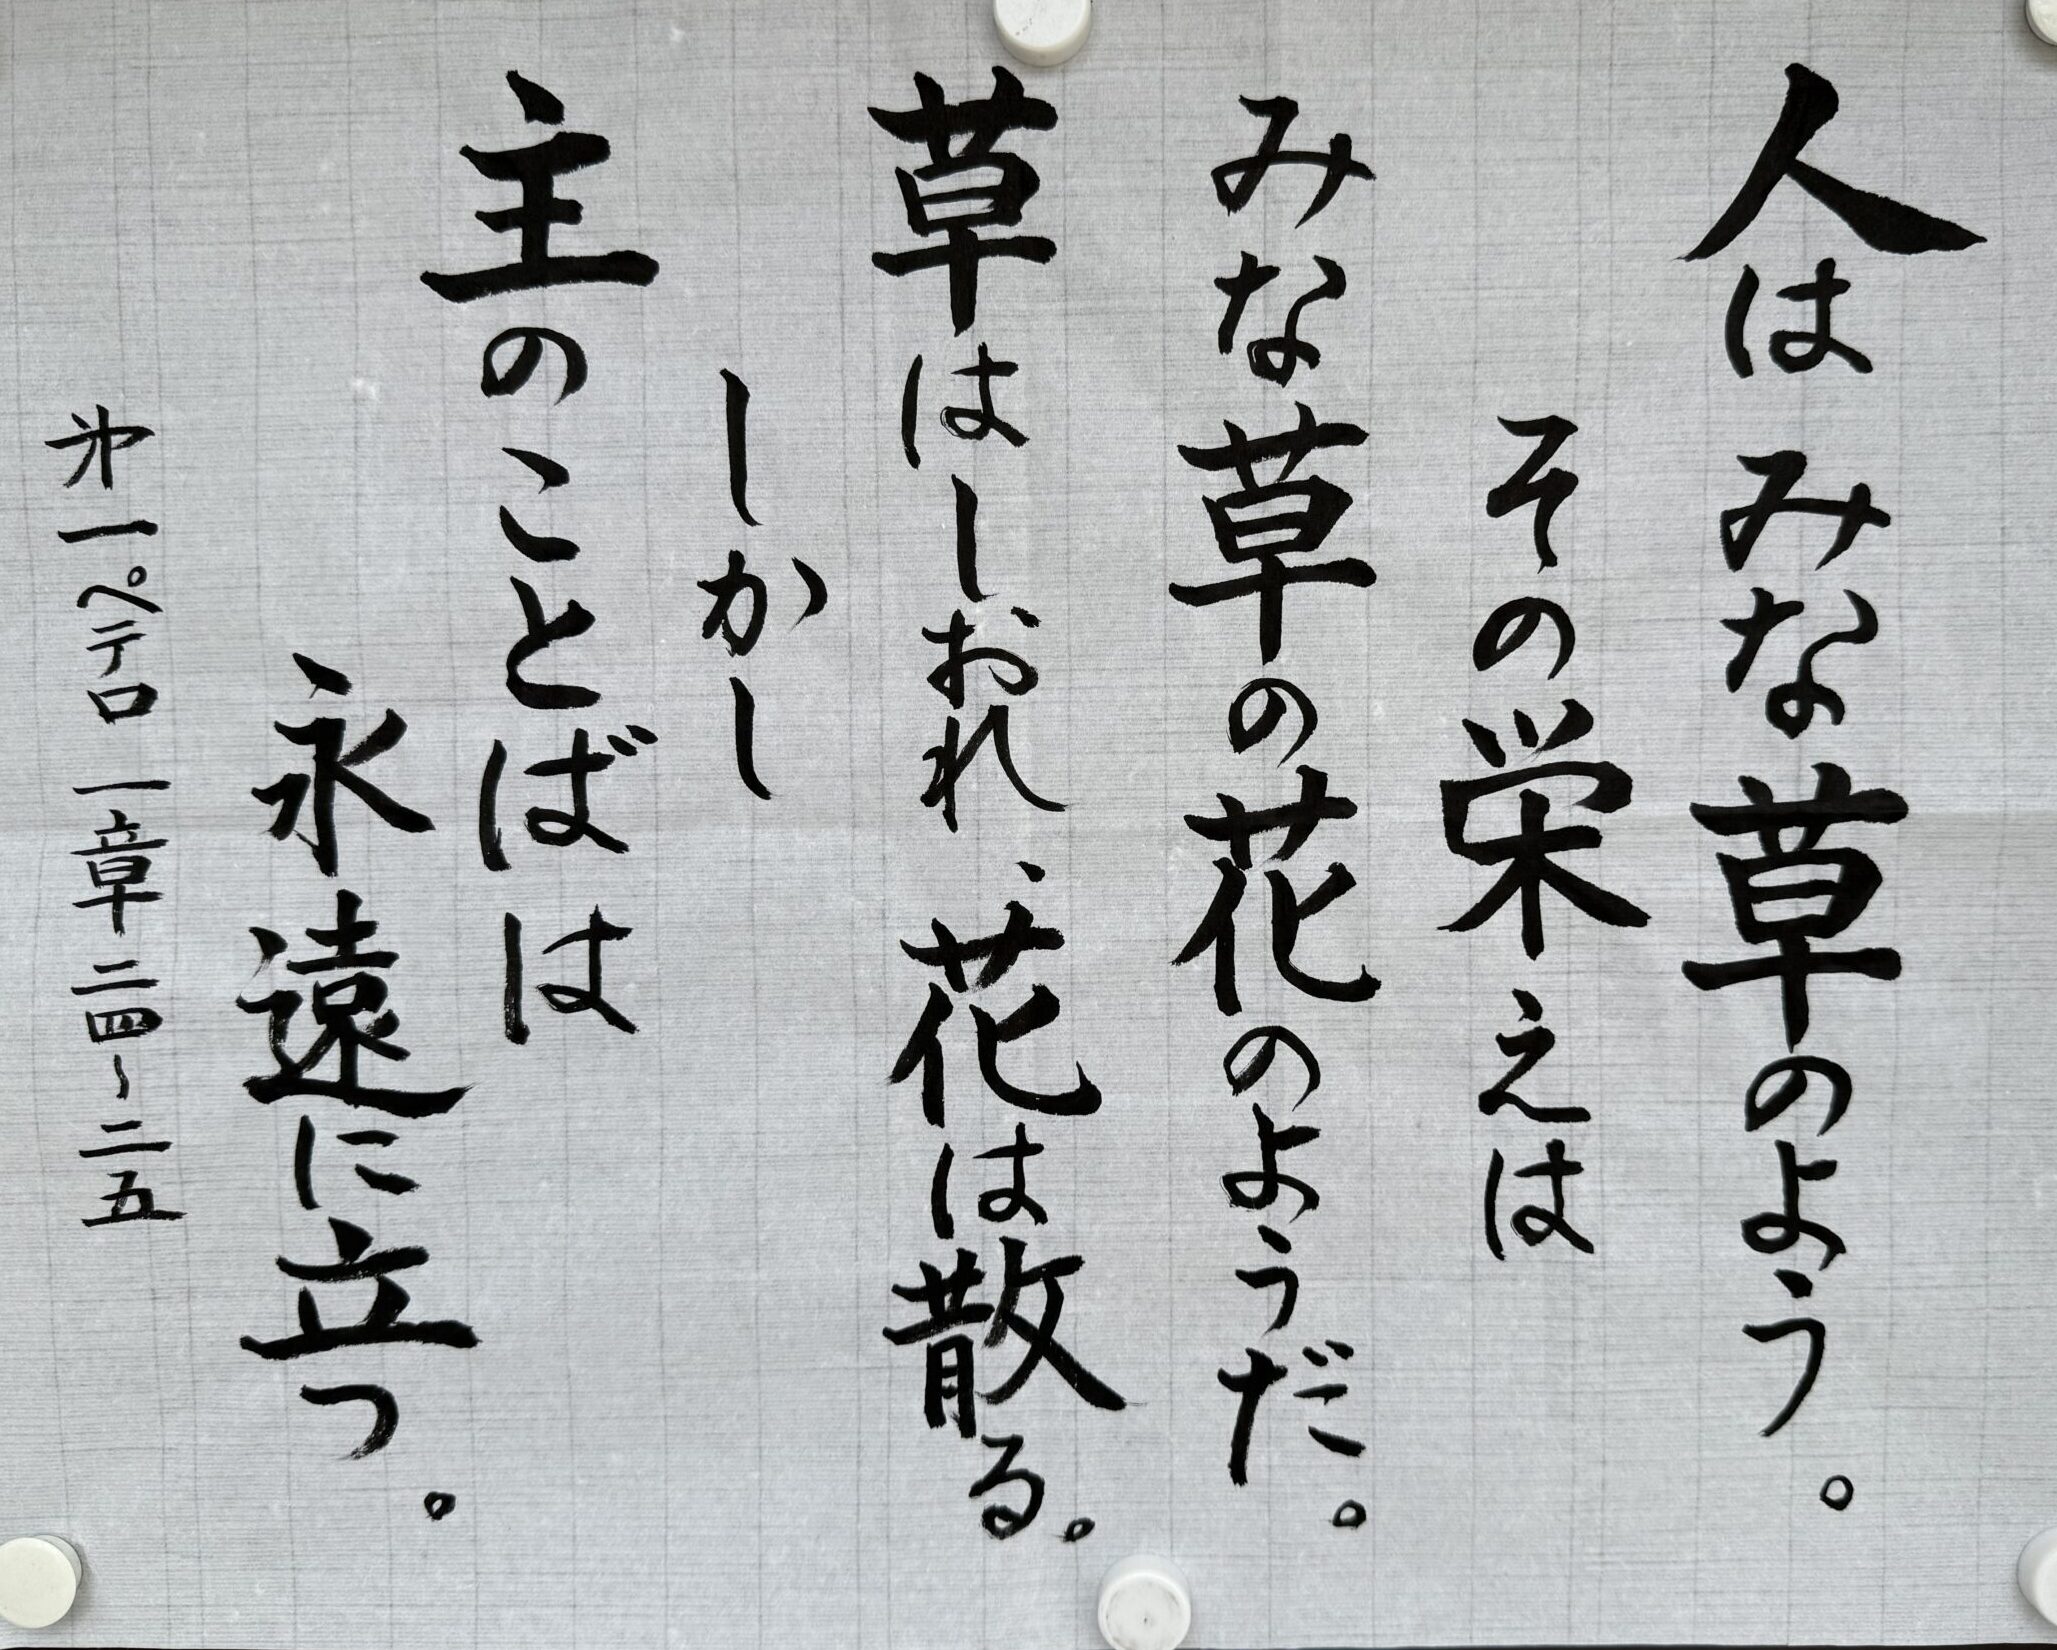 人は みな草のよう。
その栄えは
みな草の花のようだ。
草はしおれ、花は散る。
しかし
主のことばは
永遠に立つ。
第一ペテロ 一章 二四〜二五